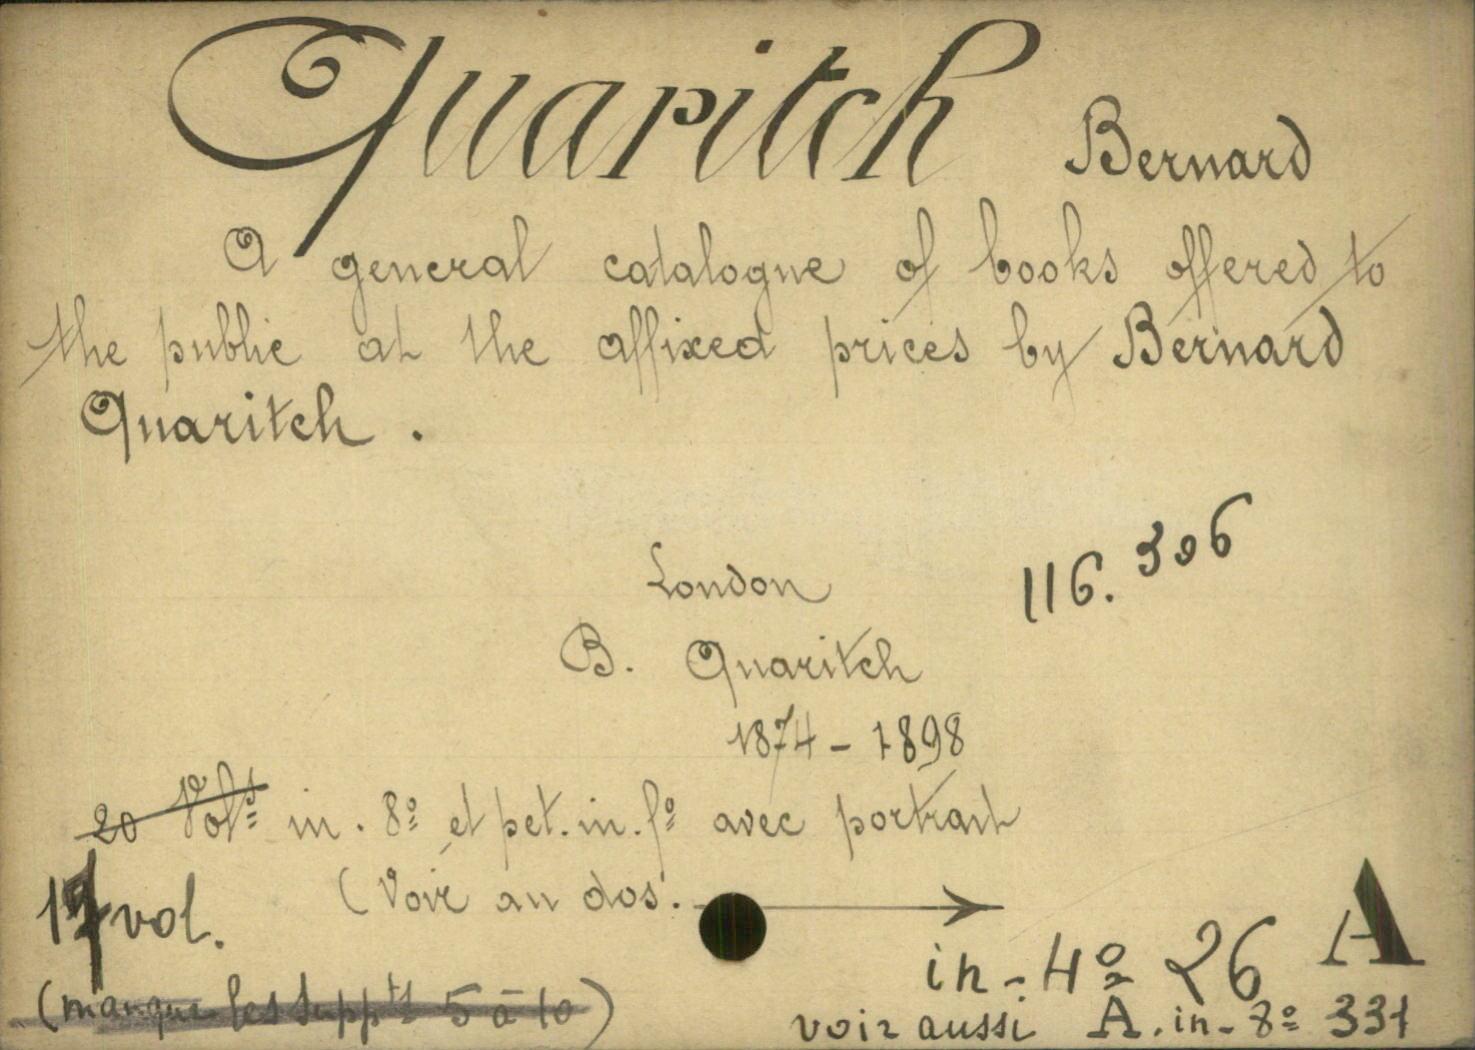 Quaritch Bernard
A general catalogue of books offered to
the public at the affixed prices by Bernard
Quaritch.
116.306
London
B. Quaritch
1874-1898
20 Vols in. 8º et pet. in. fº avec portrait
17 vol.
(Voir au dos.
A
in-4º 26
(manque les suppts 5 à 10)
voir aussi A. in-8º 331